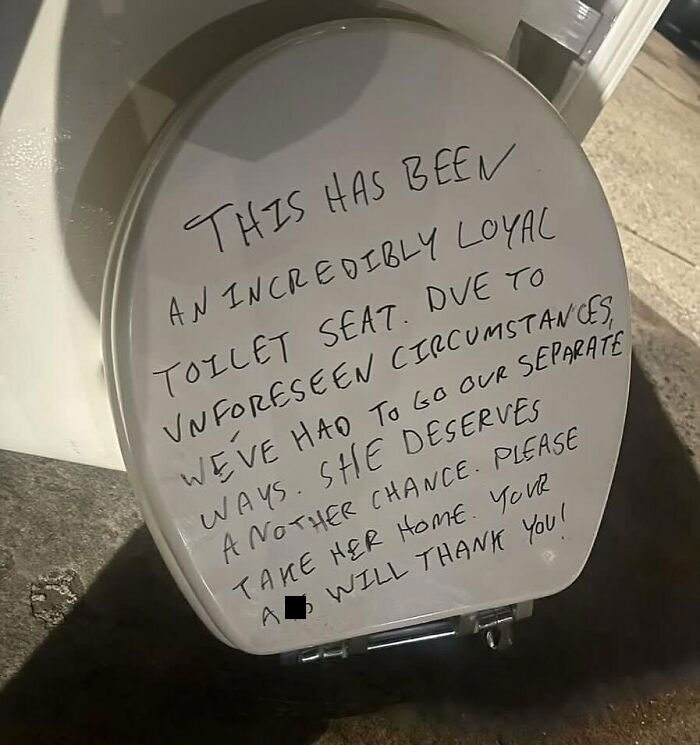 THIS HAS BEEN
AN INCREDIBLY LOYAL
TOILET SEAT. DUE TO
UNFORESEEN CIRCUMSTANCES,
WE'VE HAD TO GO OUR SEPARATE
WAYS. SHE DESERVES
ANOTHER CHANCE. PLEASE
TAKE HER HOME. YOUR
A WILL THANK YOU!